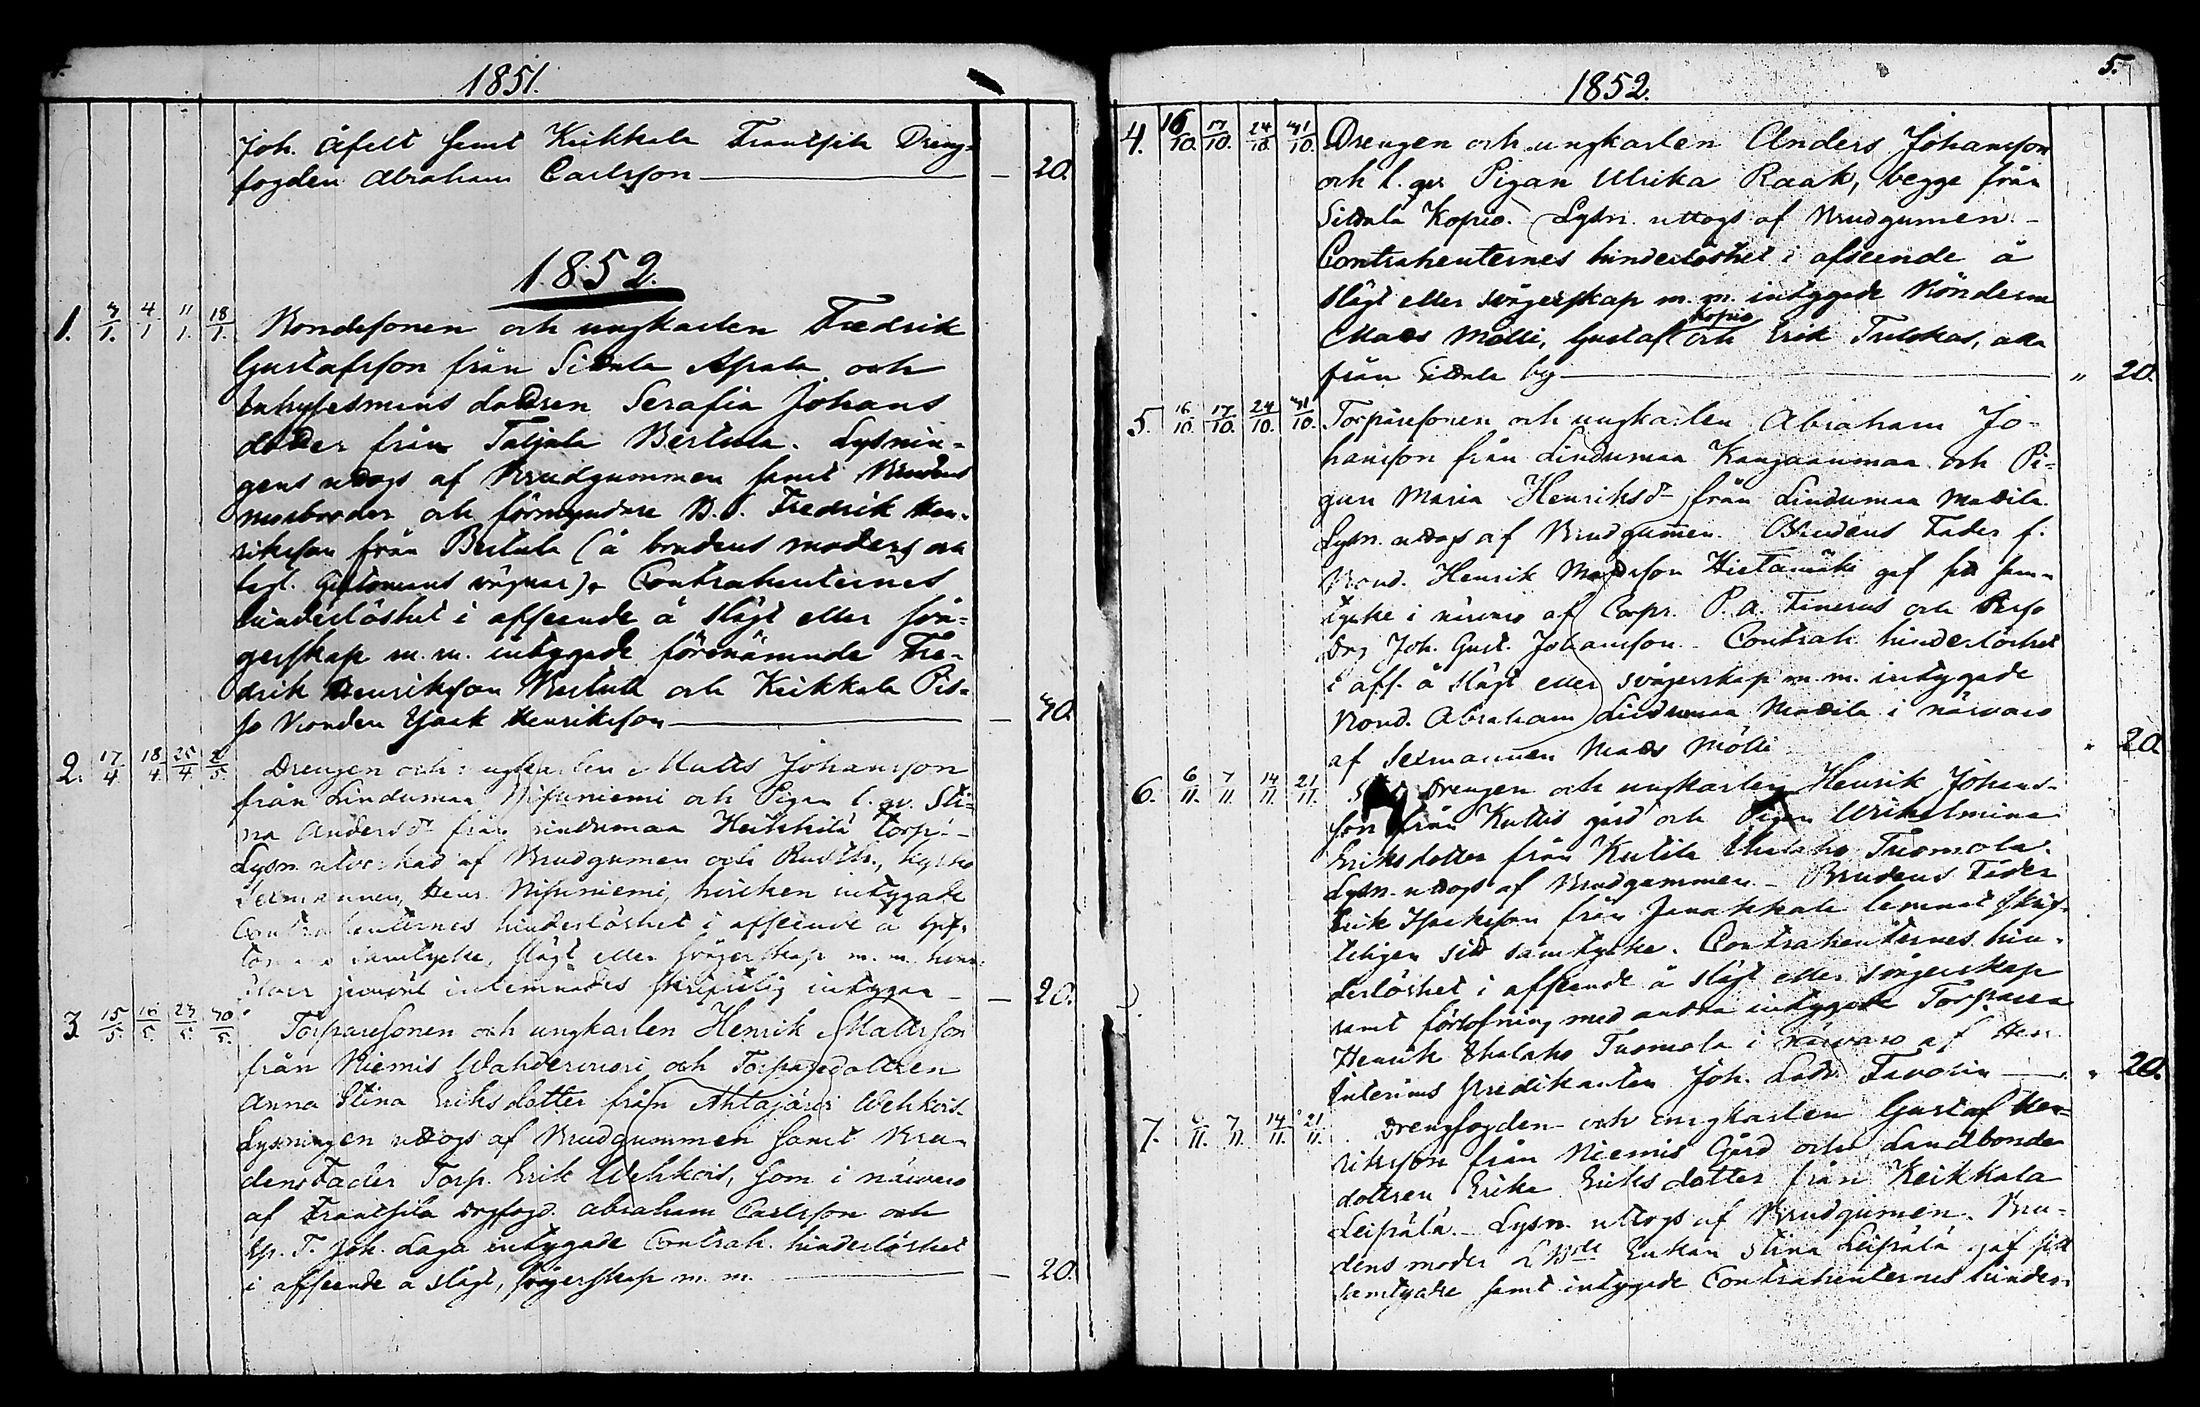 1851.
Joh. Åfelt samt Keikkala Frantsila Dreng-
fogden Abraham Carlsson — 20.
1852.
1. 3/1. 4/1 11/1. 18/1. Bondesonen och ungkarlen Fredrik
Gustafsson från Sittala Apala och
Inhysesmans dottren Serafia Johans
dotter från Taljala Bertula. Lysnin-
gens uttogs af Brudgummen samt Brudens
morbroder och förmyndare B. S. Fredrik Hen-
riksson från Bertula (å brudens moders och
egl. Giftomans vägnar). Contrahenternes
hinderlöshet i afseende å slägt eller svå-
gerskap m. m. intygade förenämnde Fre-
drik Henriksson Bertula och Keikkala Pis-
so Bonden Isaak Henriksson — 40.
2. 17/4 18/4. 25/4 2/5. Drengen och ungkarlen Matts Johansson
från Lindumaa Nipuniemi och Pigan l. qv. Sti-
na Andersdr från Lindumaa Heikkilä Torp.
Lysn. utverkad af Brudgumen och Rusth., kyrko
Sexmannen, Henr. Nipuniemi, hvilken intygade
Contrahenternes hinderlöshet i afseende å gif-
tomans samtycke, slägt eller svågerskap m. m. hvar
jemväl inlemnades skriftelig intygan — 20.
3 15/5. 16/5. 23/5. 30/5. Torparesonen och ungkarlen Henrik Mattsson
från Niemis Wahdervuori och Torparedottren
Anna Stina Eriksdotter från Ahtajärvi Wehkois.
Lysningen uttogs af Brudgummen samt Bru-
dens Fader Torp. Erik Wehkois, som i närvaro
af Frantsila drgfogd. Abraham Carlsson och
Sp. T. Joh. Laga intygade Contrah. hinderlöshet
i afseende å slägt, svågerskap m. m. — 20.
1852. 5.
4. 16/10. 17/10. 24/10. 31/10. Drengen och ungkarlen Anders Johansson
och l. qv. Pigan Ulrika Raak, begge från
Sittala Kopio. Lysn. uttogs af Brudgumen. -
Contrahenternes hinderlöshet i afseende å
slägt eller svågerskap m. m. intygade Bönderne
Kopio
Matts Mölli, Gustaf och Erik Tulokas, alla
från Sittala by — " 20.
5. 16/10. 17/10. 24/10. 31/10. Torparesonen och ungkarlen Abraham Jo-
hansson från Lindumaa Kangaanmaa och Pi-
gan Maria Henriksdr från Lindumaa Mattila.
Lysn. uttogs af Brudgumen. Brudens Fader f.
Bond. Henrik Mattsson Hietamäki gaf sitt sam-
tycke i närvaro af Corpr. P. A. Finerus och
Drg Joh. Gust. Johansson. Contrah hinderlöshet
i afs. å slägt eller svågerskap m. m. intygade
Bond. Abraham Lindumaa Mattila i närvaro
af Sexmannen Matts Mölli " 20.
6. 6/11. 7/11. 14/11. 21/11. Drengen och ungkarlen Henrik Johans-
son från Kuttis gård och Pigan Wilhelmina
Eriksdotter från Kutila Uhalaho Tuomola.
Lysn. uttogs af Brudgummen. - Brudens Fader
Erik Isaksson från Janakkala lemnat skrif-
teligen sitt samtycke. Contrahenternes hin-
derlöshet i afseende å slägt eller svågerskap
samt förlofning med andra intygade Torparen
Henrik Uhalaho Tuomola i närvaro af Herr
Interims predikanten Joh. Ludv. Favorin — " 20.
7. 6/11. 7/11. 14/11. 21/11. Drengfogden och ungkarlen Gustaf Hen-
riksson från Niemis Gård och Landbonde
dottren Erika Eriksdotter från Keikkala
Leipälä. - Lysn. uttogs af Brudgumen. Bru-
dens moder L Bde Enkan Stina Leipälä gaf sitt
samtycke samt intygade Contrahenternes hinder-